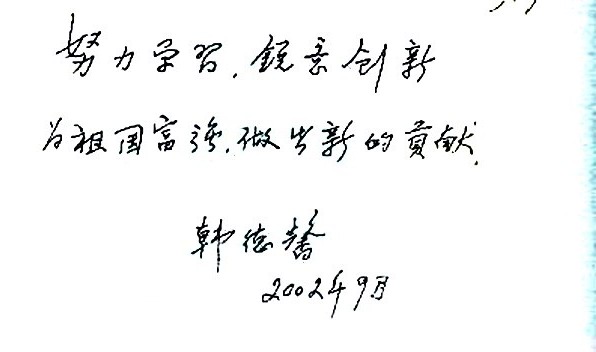 努力学习,锐意创新
为祖国富强,做出新的贡献.
韩德馨
2002年9月